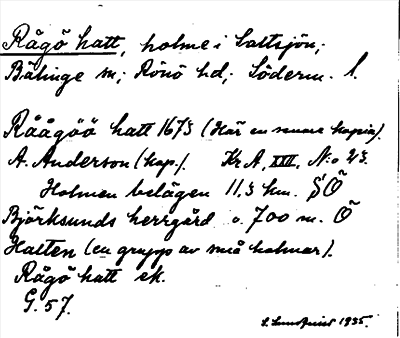 Rågö hatt, holme i Saltsjön,
Bälinge sn; Rönö hd; Söderm. l.
Råågöö hatt 1673 (Här en senare kopia).
A. Anderson (kop.). Kr A, XXIII, N:o 23.
Holmen belägen 11,3 km. SÖ
Björksunds herrgård o. 700 m. Ö
Hatten (en grupp av små holmar).
Rågö hatt ek.
G. 57.
S. Lundqvist 1935.